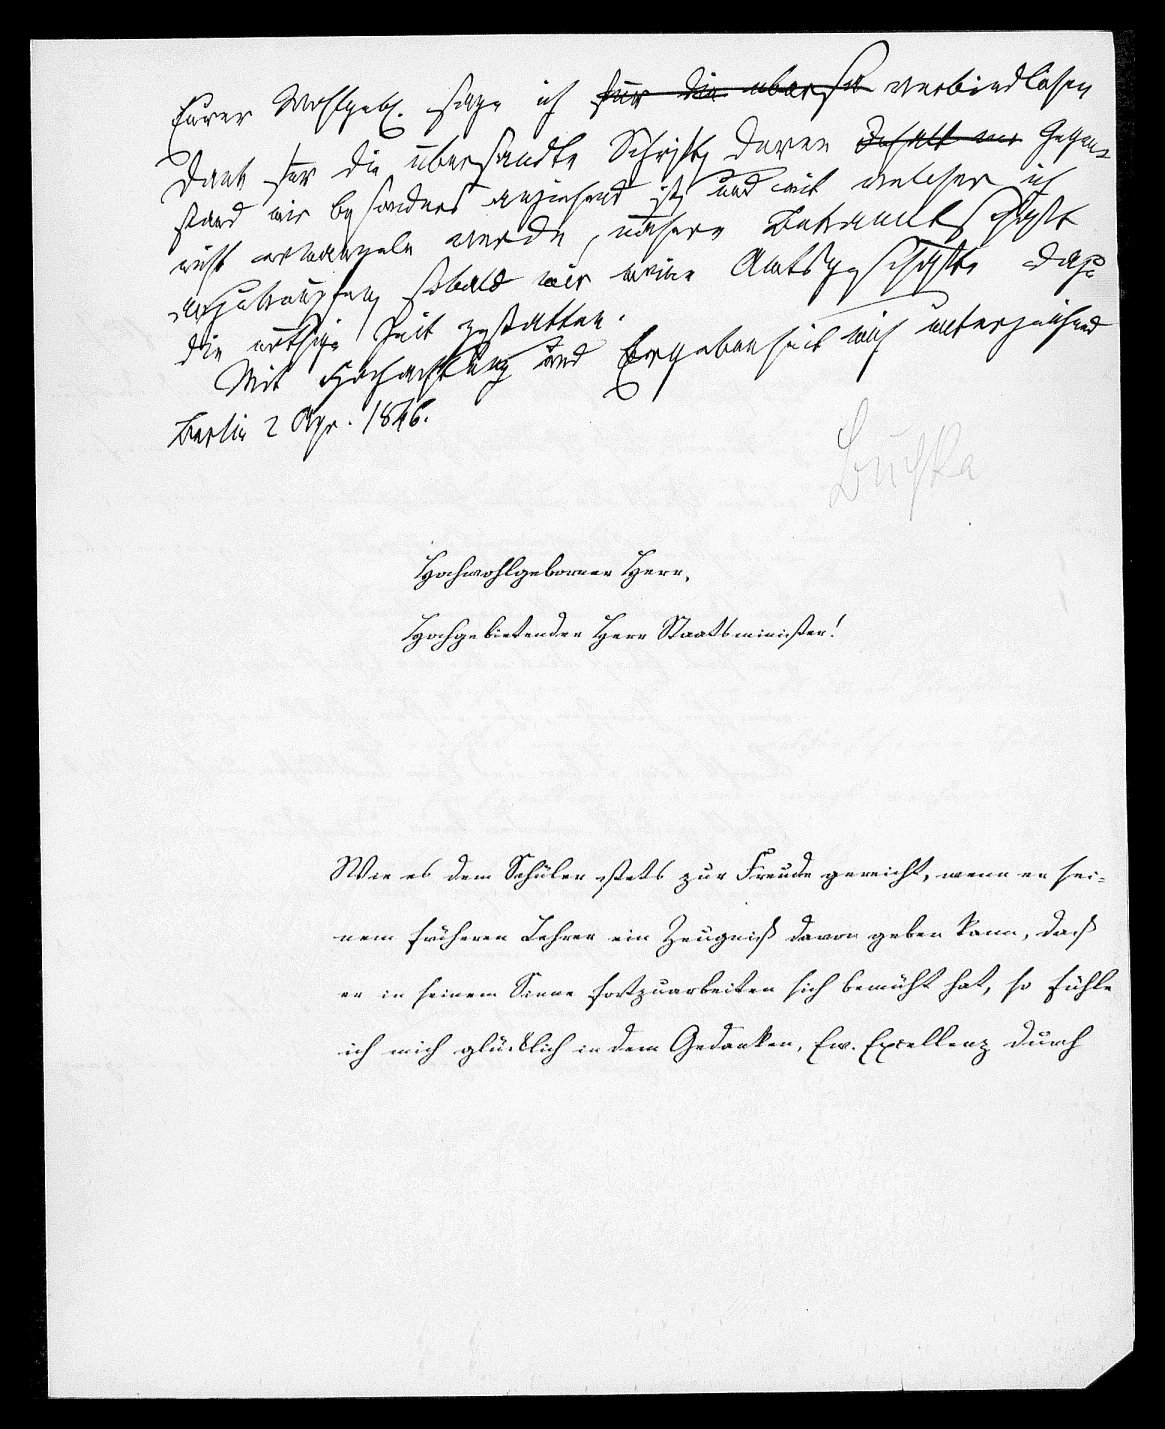 Eurer Wohlgeb. sage ich für die übersa verbindlichen
Dank für die übersandte Schrift, deren Inhalt mir Gegen-
stand mir besonders anziehend ist, und mit welcher ich
nicht ermangeln werde, nähere Bekanntschaft
anzuknüpfen, sobald mir meine Amtsgeschäfte dazu
die nöthige Zeit gestatten.
Mit Hochachtung und Ergebenheit mich unterzeichnend
Berlin 2 Apr. 1846.
Buchka
Hochwohlgeborner Herr,
Hochgebietender Herr Staatsminister!
Wie es dem Schüler stets zur Freude gereicht, wenn er sei-
nem früheren Lehrer ein Zeugniß davon geben kann, daß
er in seinem Sinne fortzuarbeiten sich bemüht hat, so fühle
ich mich glücklich in dem Gedanken, Ew. Excellenz durch